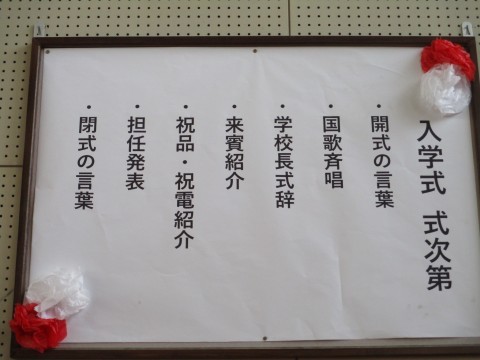 入学式 式次第
・開式の言葉
・国歌斉唱
・学校長式辞
・来賓紹介
・祝品・祝電紹介
・担任発表
・閉式の言葉